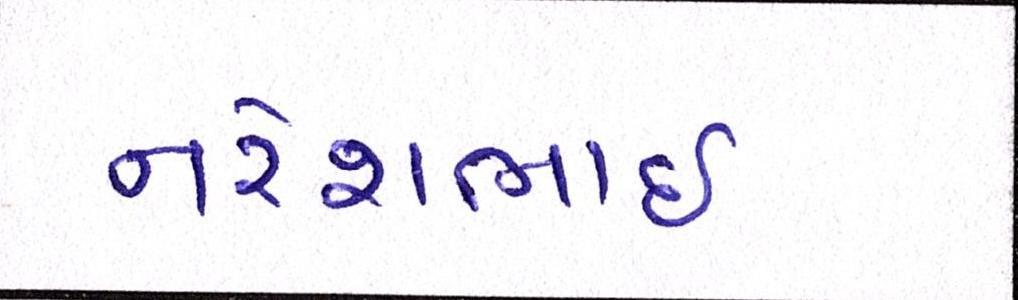 નરેશભાઈ